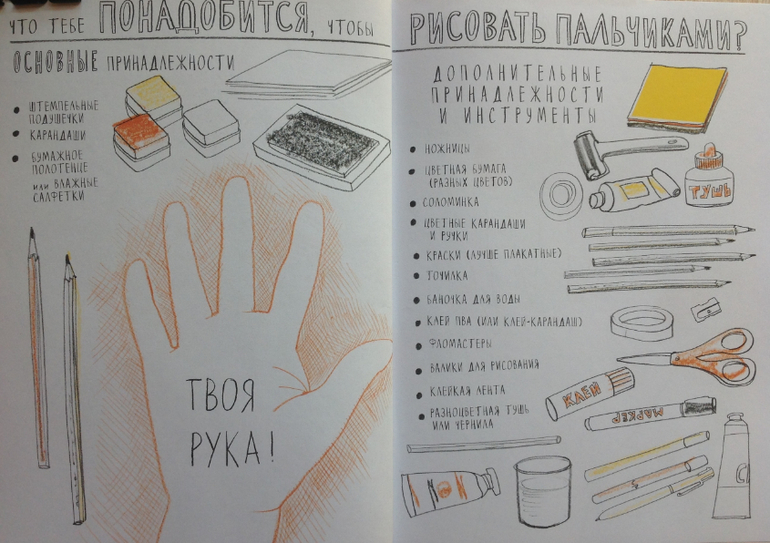 что тебе ПОНАДОБИТСЯ, чтобы
ОСНОВНЫЕ ПРИНАДЛЕЖНОСТИ
• ШТЕМПЕЛЬНЫЕ
ПОДУШЕЧКИ
• КАРАНДАШИ
• БУМАЖНОЕ
ПОЛОТЕНЦЕ
или ВЛАЖНЫЕ
САЛФЕТКИ
ТВОЯ
РУКА!
РИСОВАТЬ ПАЛЬЧИКАМИ?
ДОПОЛНИТЕЛЬНЫЕ
ПРИНАДЛЕЖНОСТИ
И ИНСТРУМЕНТЫ
• НОЖНИЦЫ
• ЦВЕТНАЯ БУМАГА
(РАЗНЫХ ЦВЕТОВ)
• СОЛОМИНКА
• ЦВЕТНЫЕ КАРАНДАШИ
И РУЧКИ
• КРАСКИ (ЛУЧШЕ ПЛАКАТНЫЕ)
• ТОЧИЛКА
• БАНОЧКА ДЛЯ ВОДЫ
• КЛЕЙ ПВА (ИЛИ КЛЕЙ-КАРАНДАШ)
• ФЛОМАСТЕРЫ
• ВАЛИКИ ДЛЯ РИСОВАНИЯ
• КЛЕЙКАЯ ЛЕНТА
• РАЗНОЦВЕТНАЯ ТУШЬ
ИЛИ ЧЕРНИЛА
ТУШЬ
КЛЕЙ
МАРКЕР